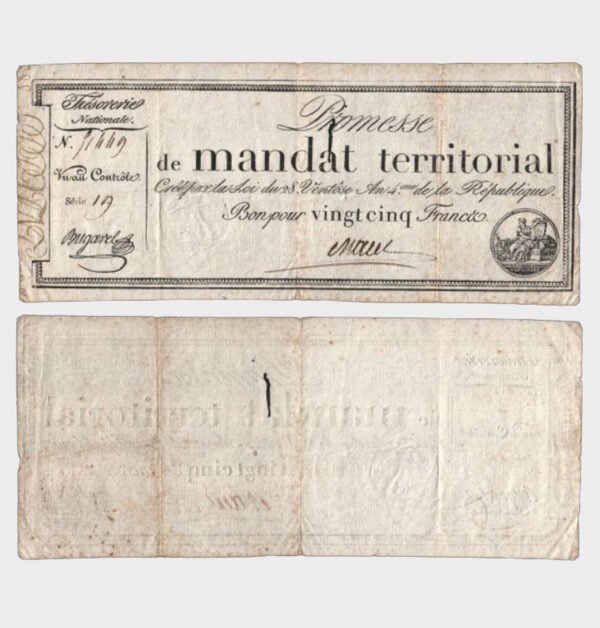 Trésorerie
Nationale.
N.
Vu au Contrôle
Série 119
Bugarel
Promesse
de mandat territorial
Créé par la Loi du 28. Ventôse An 4.eme de la République.
Bon pour vingt cinq Francs.